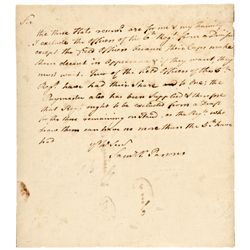 Sir
the three Hats reserved are for me & my Family
I exclude the Officers of the 6th Regt from a Draft
except the field Officers because their Caps make
them decent in Appearance & they want they
must want. Four of the field Officers of the 6th
Regt have had their Share and to be the
Paymaster also has been Supplied & therefore
that Regt ought to be excluded from a Draft
for the three remaining unless as the Regts who
have them can have no more than the 6th have
had
Yr Hble Servt
Samll H. Parsons